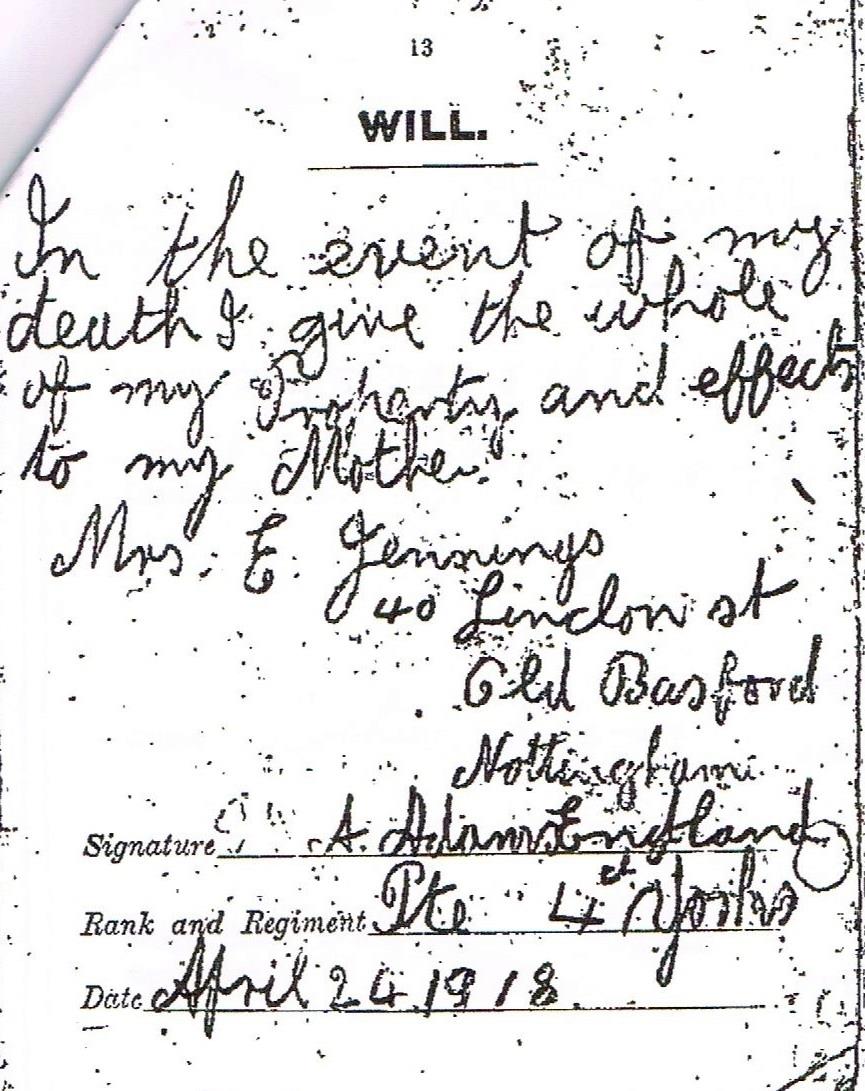 13
WILL.
In the event of my
death I give the whole
of my Property and effects
to my Mother.
Mrs. E. Jennings
40 Lindon st
Old Basford
Nottingham.
Signature A. Adams England
Rank and Regiment Pte 4 Yorks
Date April 24 1918